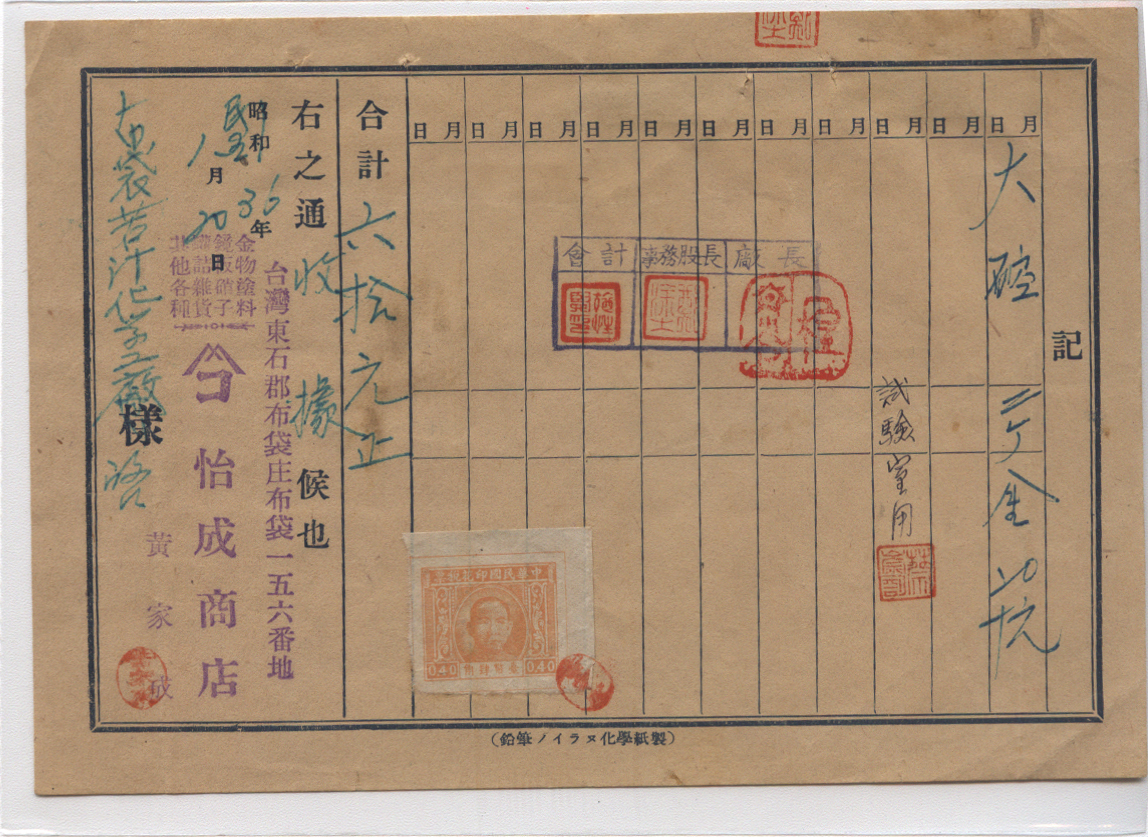 記
月日 月日 月日 月日 月日 月日 月日 月日 月日 月日 月日
大碗 三个 金20元
試驗室用
廠長
事務股長
會計
中華民國印花稅票
0.40 0.40
合計 六拾元正
右之通收據候也
昭和 民國 36年
1月20日
台灣東石郡布袋庄布袋一五六番地
金物塗料
鏡板硝子
罐詰雜貨
其他各種
コ 怡成商店
黃家
布袋苦汁化學工廠 樣
(鉛筆ノイラヌ化學紙製)